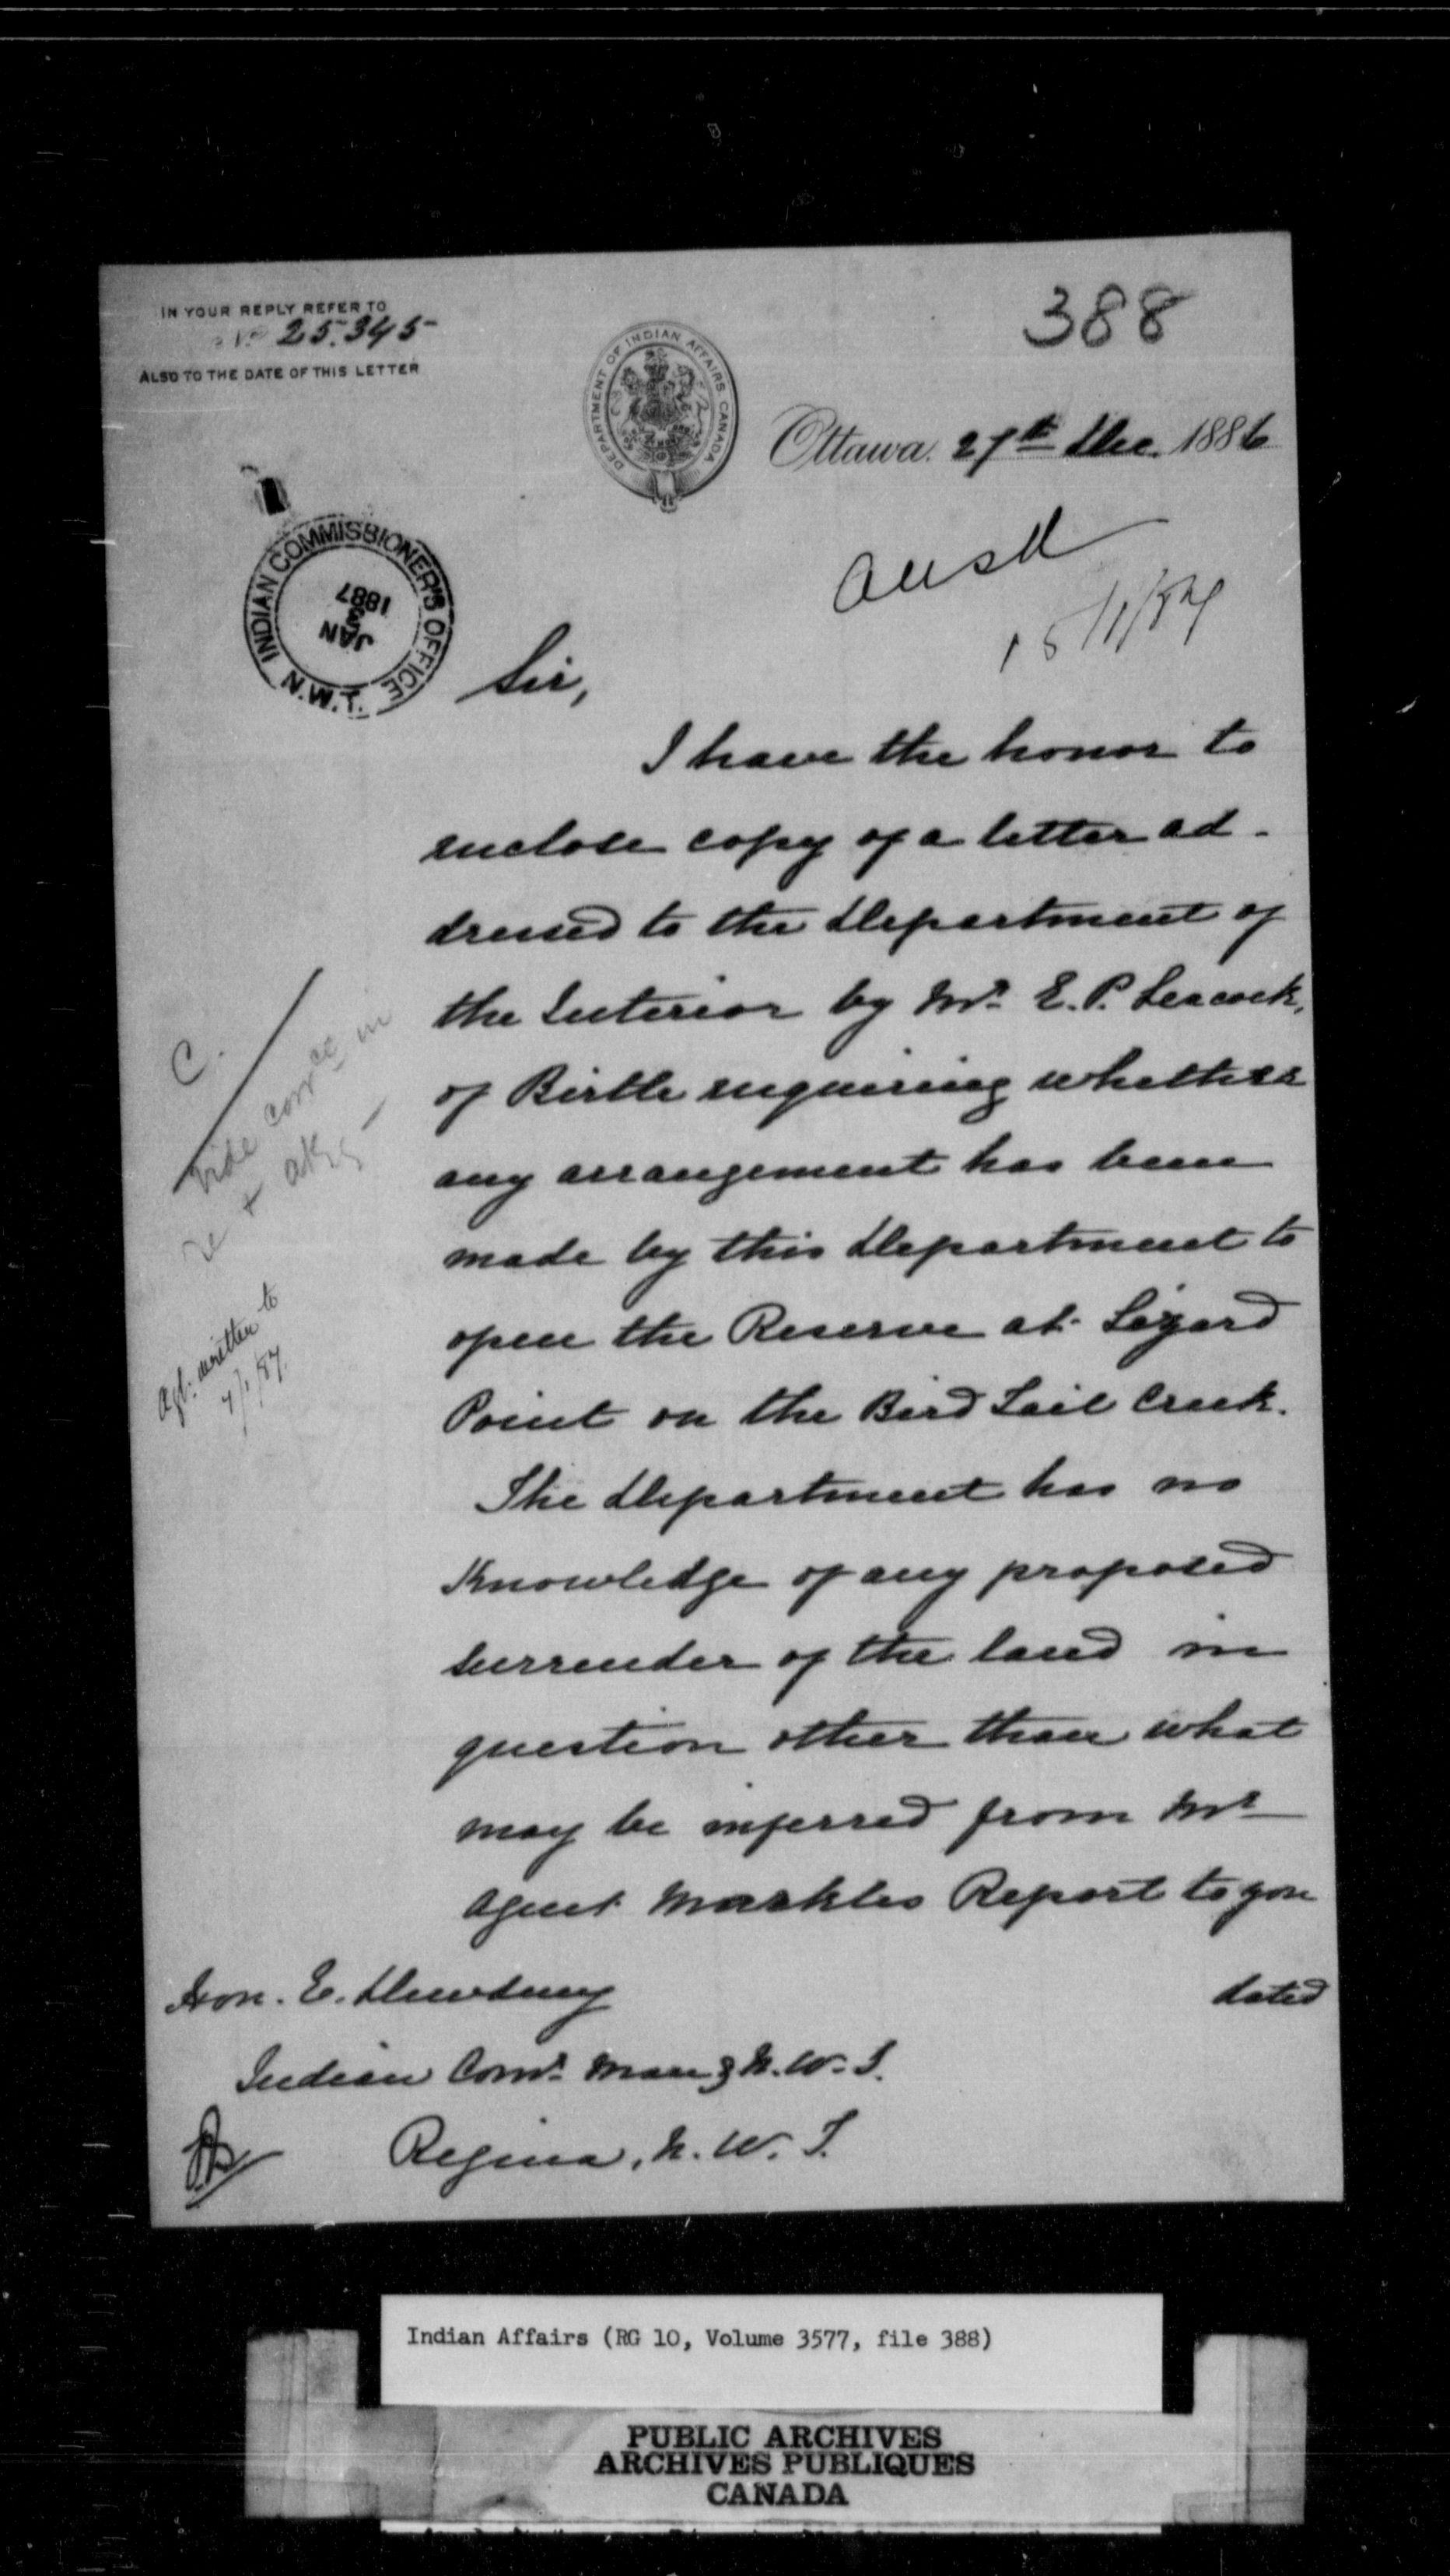 IN YOUR REPLY REFER TO
No 25.345
ALSO TO THE DATE OF THIS LETTER
388
DEPARTMENT OF INDIAN AFFAIRS CANADA
Ottawa. 27th Dec. 1886
INDIAN COMMISSIONER'S OFFICE
N.W.T.
JAN
3
1887
Ansd
15/1/87
Sir,
I have the honor to
enclose copy of a letter ad-
dressed to the Department of
the Interior by Mr. E. P. Leacock,
of Birtle enquiring whether
any arrangement has been
made by this Department to
open the Reserve at Lizard
Point on the Bird Tail Creek.
The Department has no
Knowledge of any proposed
surrender of the land in
question other than what
may be inferred from Mr
Agent Markles Report to you
dated
C.
vide corrce in
re
Agt. written to
7/1/87.
Hon. E. Dewdney
Indian Comr. Man & N. W. T.
Regina, N. W. T.
Indian Affairs (RG 10, Volume 3577, file 388)
PUBLIC ARCHIVES
ARCHIVES PUBLIQUES
CANADA